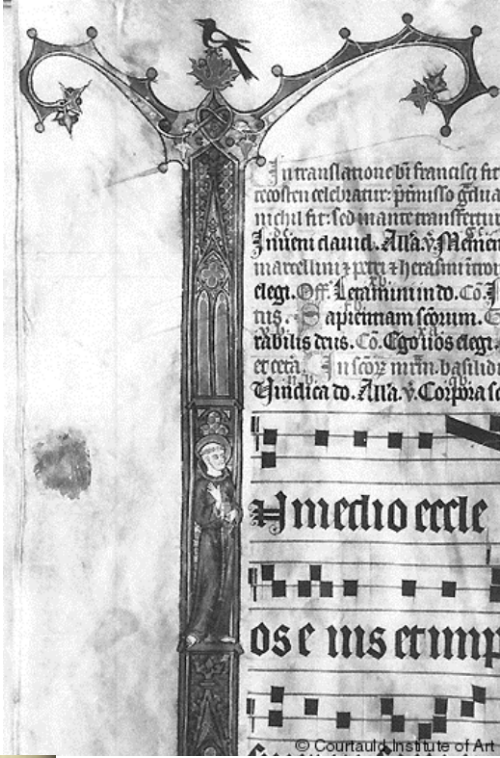 In translatione bi francisci fit
celebratur:
nichil fit: sed in ante
Inueni dauid. Alla. v. Memen
marcellini ⁊ petri ⁊ herasmi
elegi. Off. Letamini in do. Co.
tus. Sapientiam scorum. G
rabilis deus. Co. Ego uos elegi.
In scorꝝ mrm. basilidi
Uindica do. Alla. v. Corpora sc
N medio eccle
os e ius et imp
© Courtauld Institute of Art